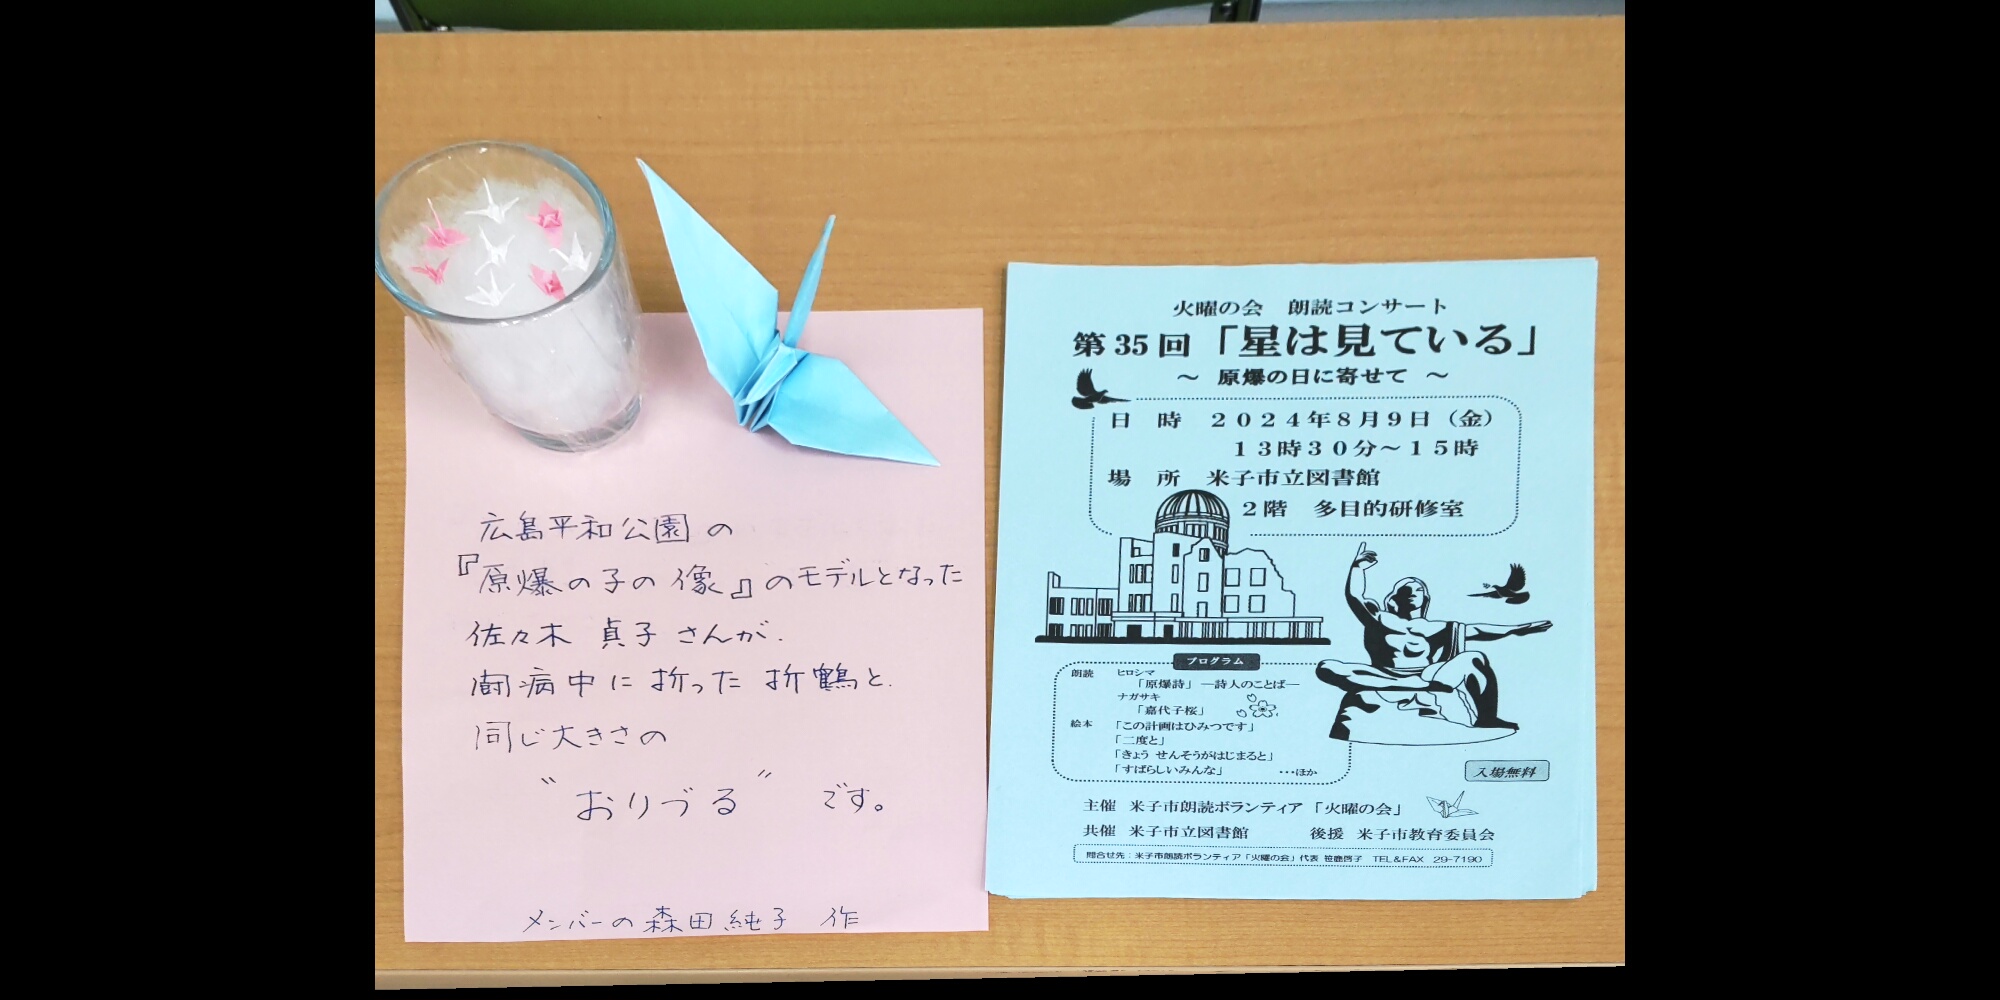 広島平和公園の
『原爆の子の像』のモデルとなった
佐々木 貞子さんが、
闘病中に折った折鶴と、
同じ大きさの
〝おりづる〟 です。
メンバーの森田純子 作
火曜の会 朗読コンサート
第35回「星は見ている」
～ 原爆の日に寄せて ～
日 時 2024年8月9日（金）
13時30分～15時
場 所 米子市立図書館
2階 多目的研修室
プログラム
朗読 ヒロシマ
「原爆詩」―詩人のことば―
ナガサキ
「嘉代子桜」
絵本 「この計画はひみつです」
「二度と」
「きょう せんそうがはじまると」
「すばらしいみんな」 …ほか
入場無料
主催 米子市朗読ボランティア「火曜の会」
共催 米子市立図書館 後援 米子市教育委員会
問合せ先：米子市朗読ボランティア「火曜の会」代表 笹鹿啓子 TEL&FAX 29-7190